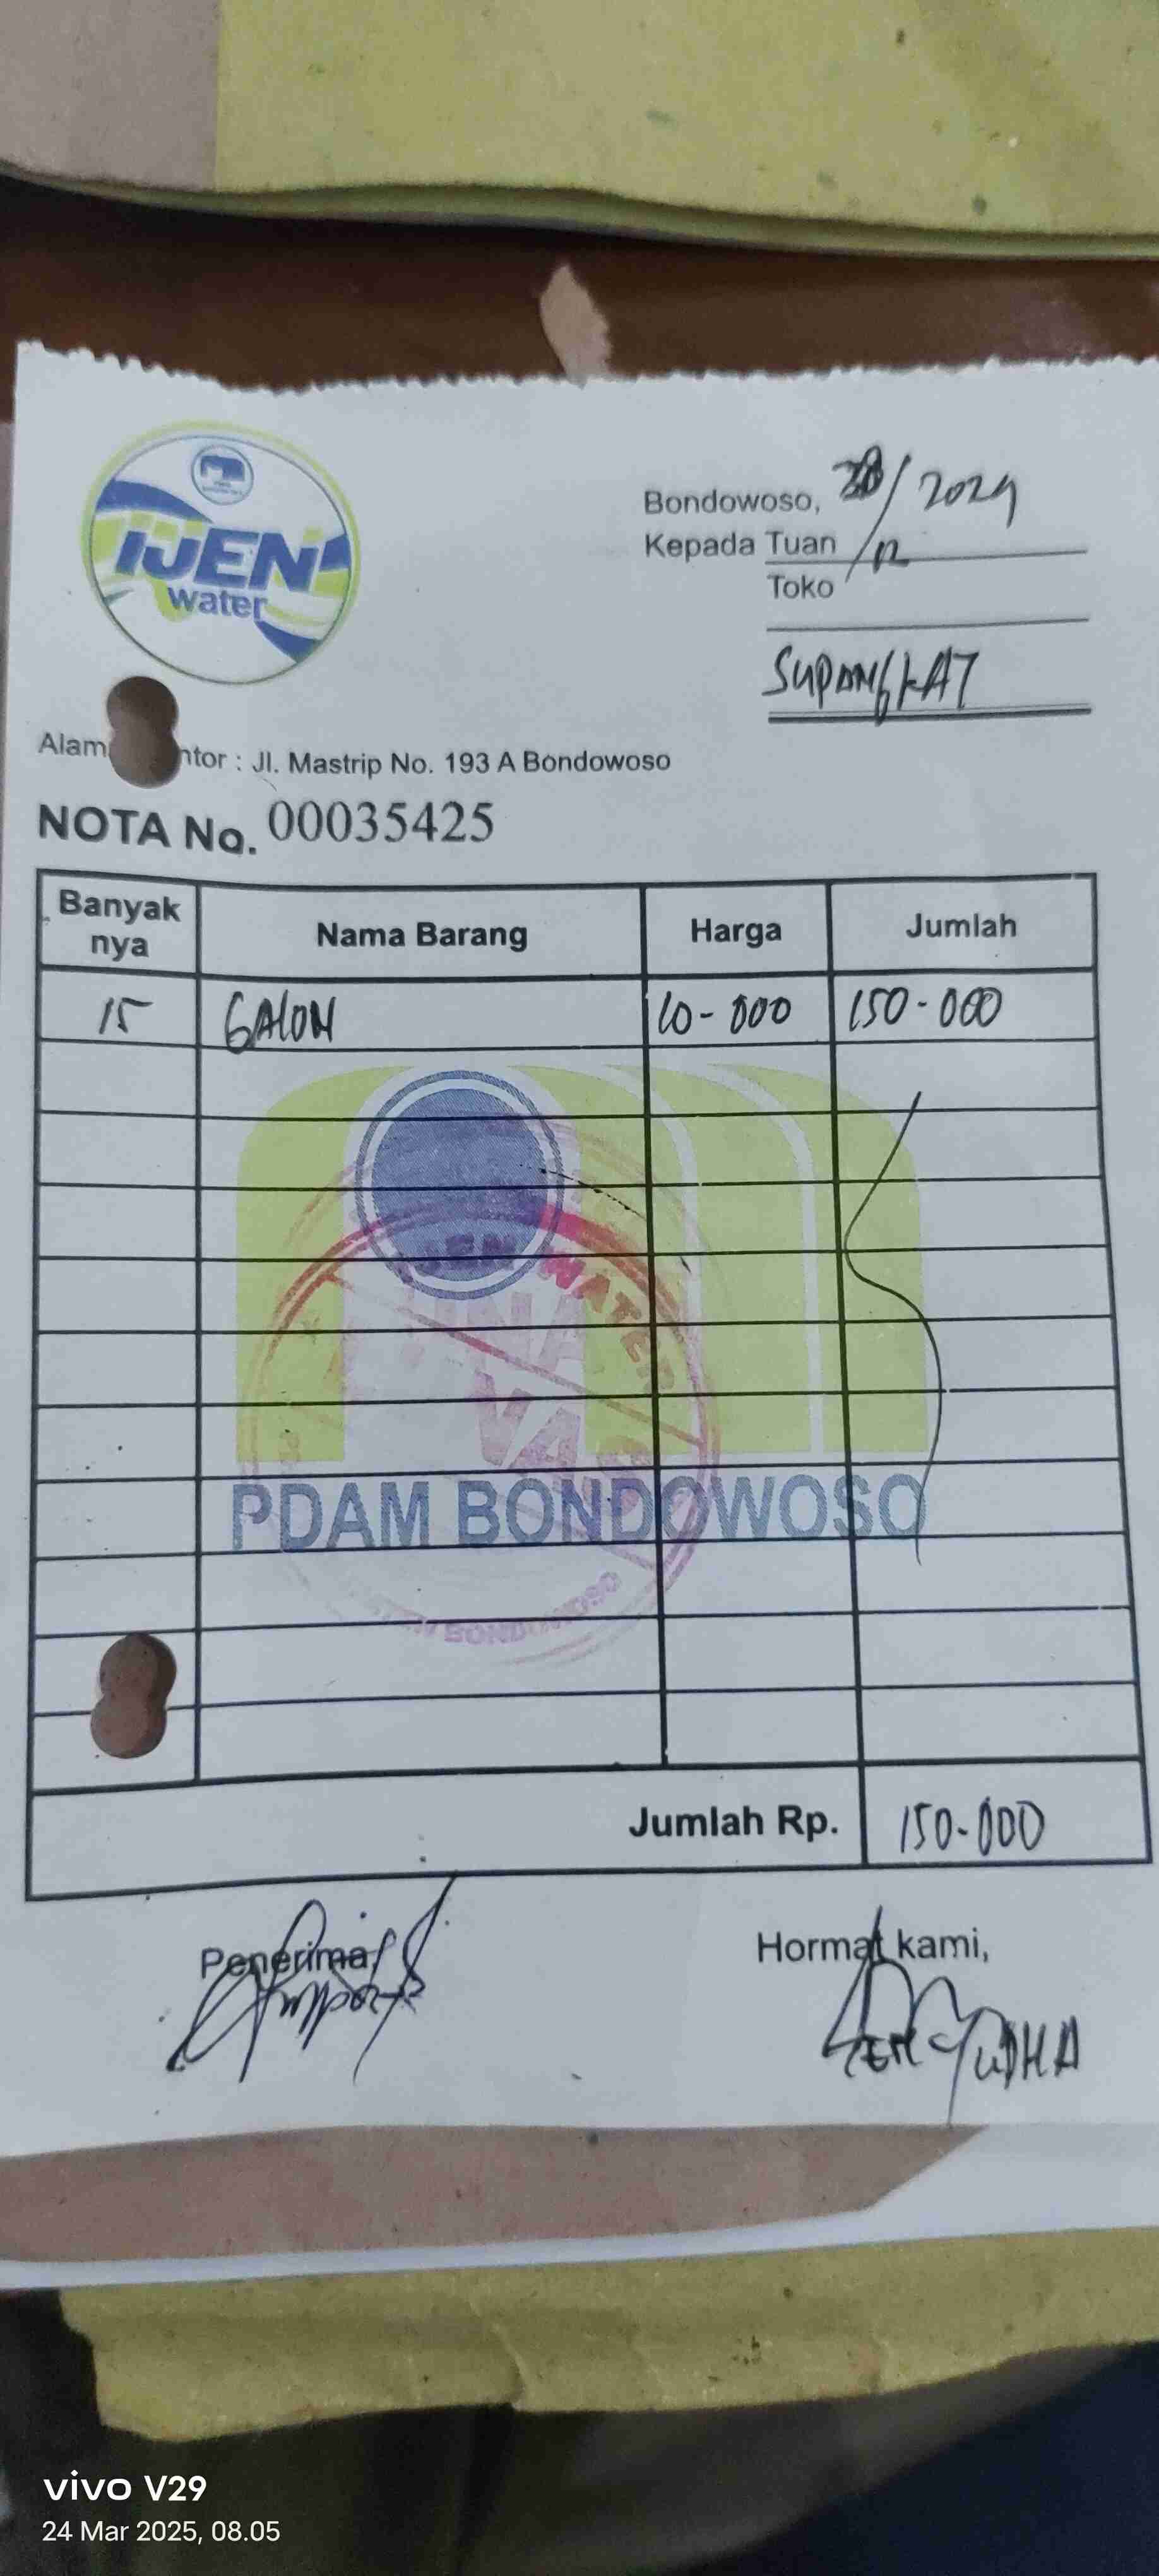 IJEN
water
Bondowoso, 28/12/2024
Kepada Tuan
Toko
SUPANGKAT
Alam ntor : Jl. Mastrip No. 193 A Bondowoso
NOTA No. 00035425
Banyak nya Nama Barang Harga Jumlah
15 GALON 10-000 150-000
IJEN WATER
PDAM BONDOWOSO
BONDOWOSO
Jumlah Rp. 150-000
Penerima,
Hormat kami,
YUDHA
vivo V29
24 Mar 2025, 08.05